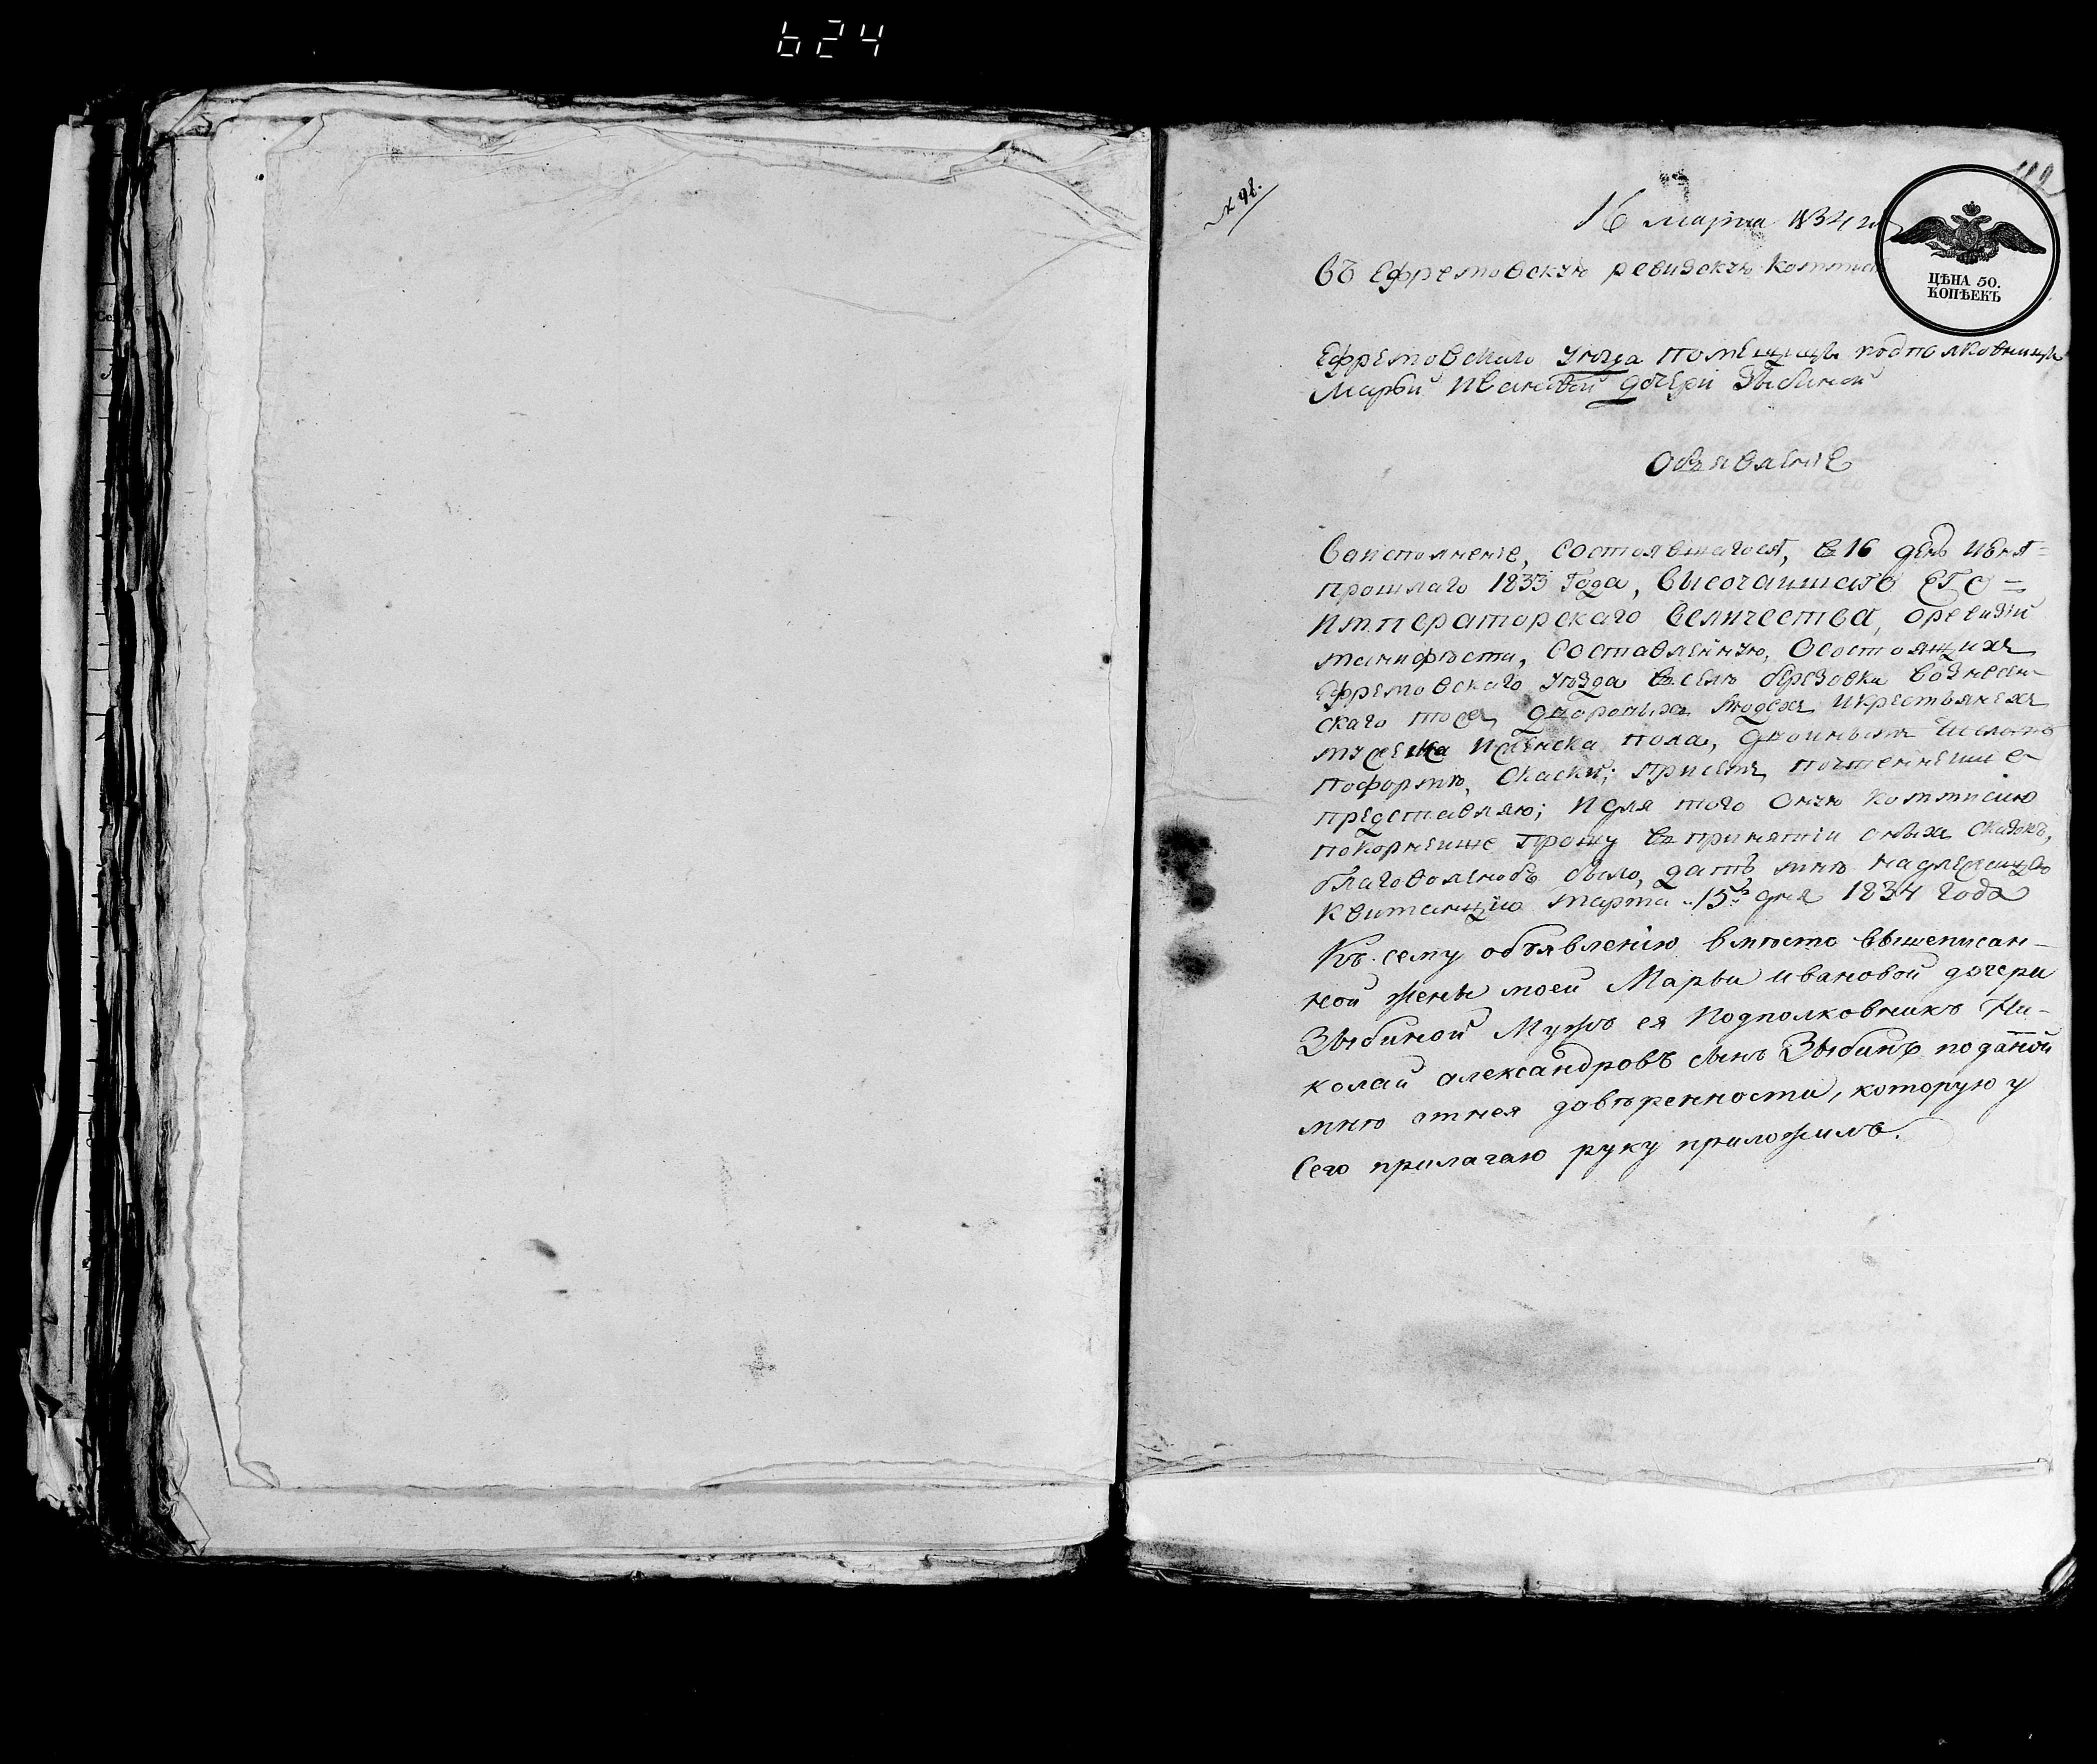 624
№ 98.
112
16 марта 1834 го
ЦѢНА 50.
КОПѢЕКЪ
Въ Ефремовскую ревизскую коммис
Ефремовскаго уѣзда помещицы подполковницы
Марьи Ивановой дочери Зыбиной
Объявленiе
Воисполненiе, состоявшагося, въ 16 день Июня
прошлаго 1833 Года, высочаишаго ЕГО =
Императорскаго Величества, оревизiи
манифѣсти, составленную, Осостоящихъ
Ефремовскаго уѣзда въ селѣ березовки Вознесен-
скаго тоже, дворовыхъ людехъ икрестьянехъ
мужеска ИЖенска пола, двоиныхъ числомъ
поформѣ, Сказки; присемъ, почтеннеише
представляю; Идля того Оную коммисию
покорнеише прошу въ принятiи оныхъ сказокъ,
благоволенобъ было, дать мнѣ надлежащую
квитанцiю марта „15го„ дня 1834 года
Къ сему объявленiю вмѣсто вышеписан-
ной жены моей Марьи Ивановой дочери
Зыбиной Мужъ ея Подполковникъ Ни-
колай александровъ сынъ Зыбинъ поданой
мнѣ отнея довѣренности, которую у
сего прилагаю руку приложилъ.